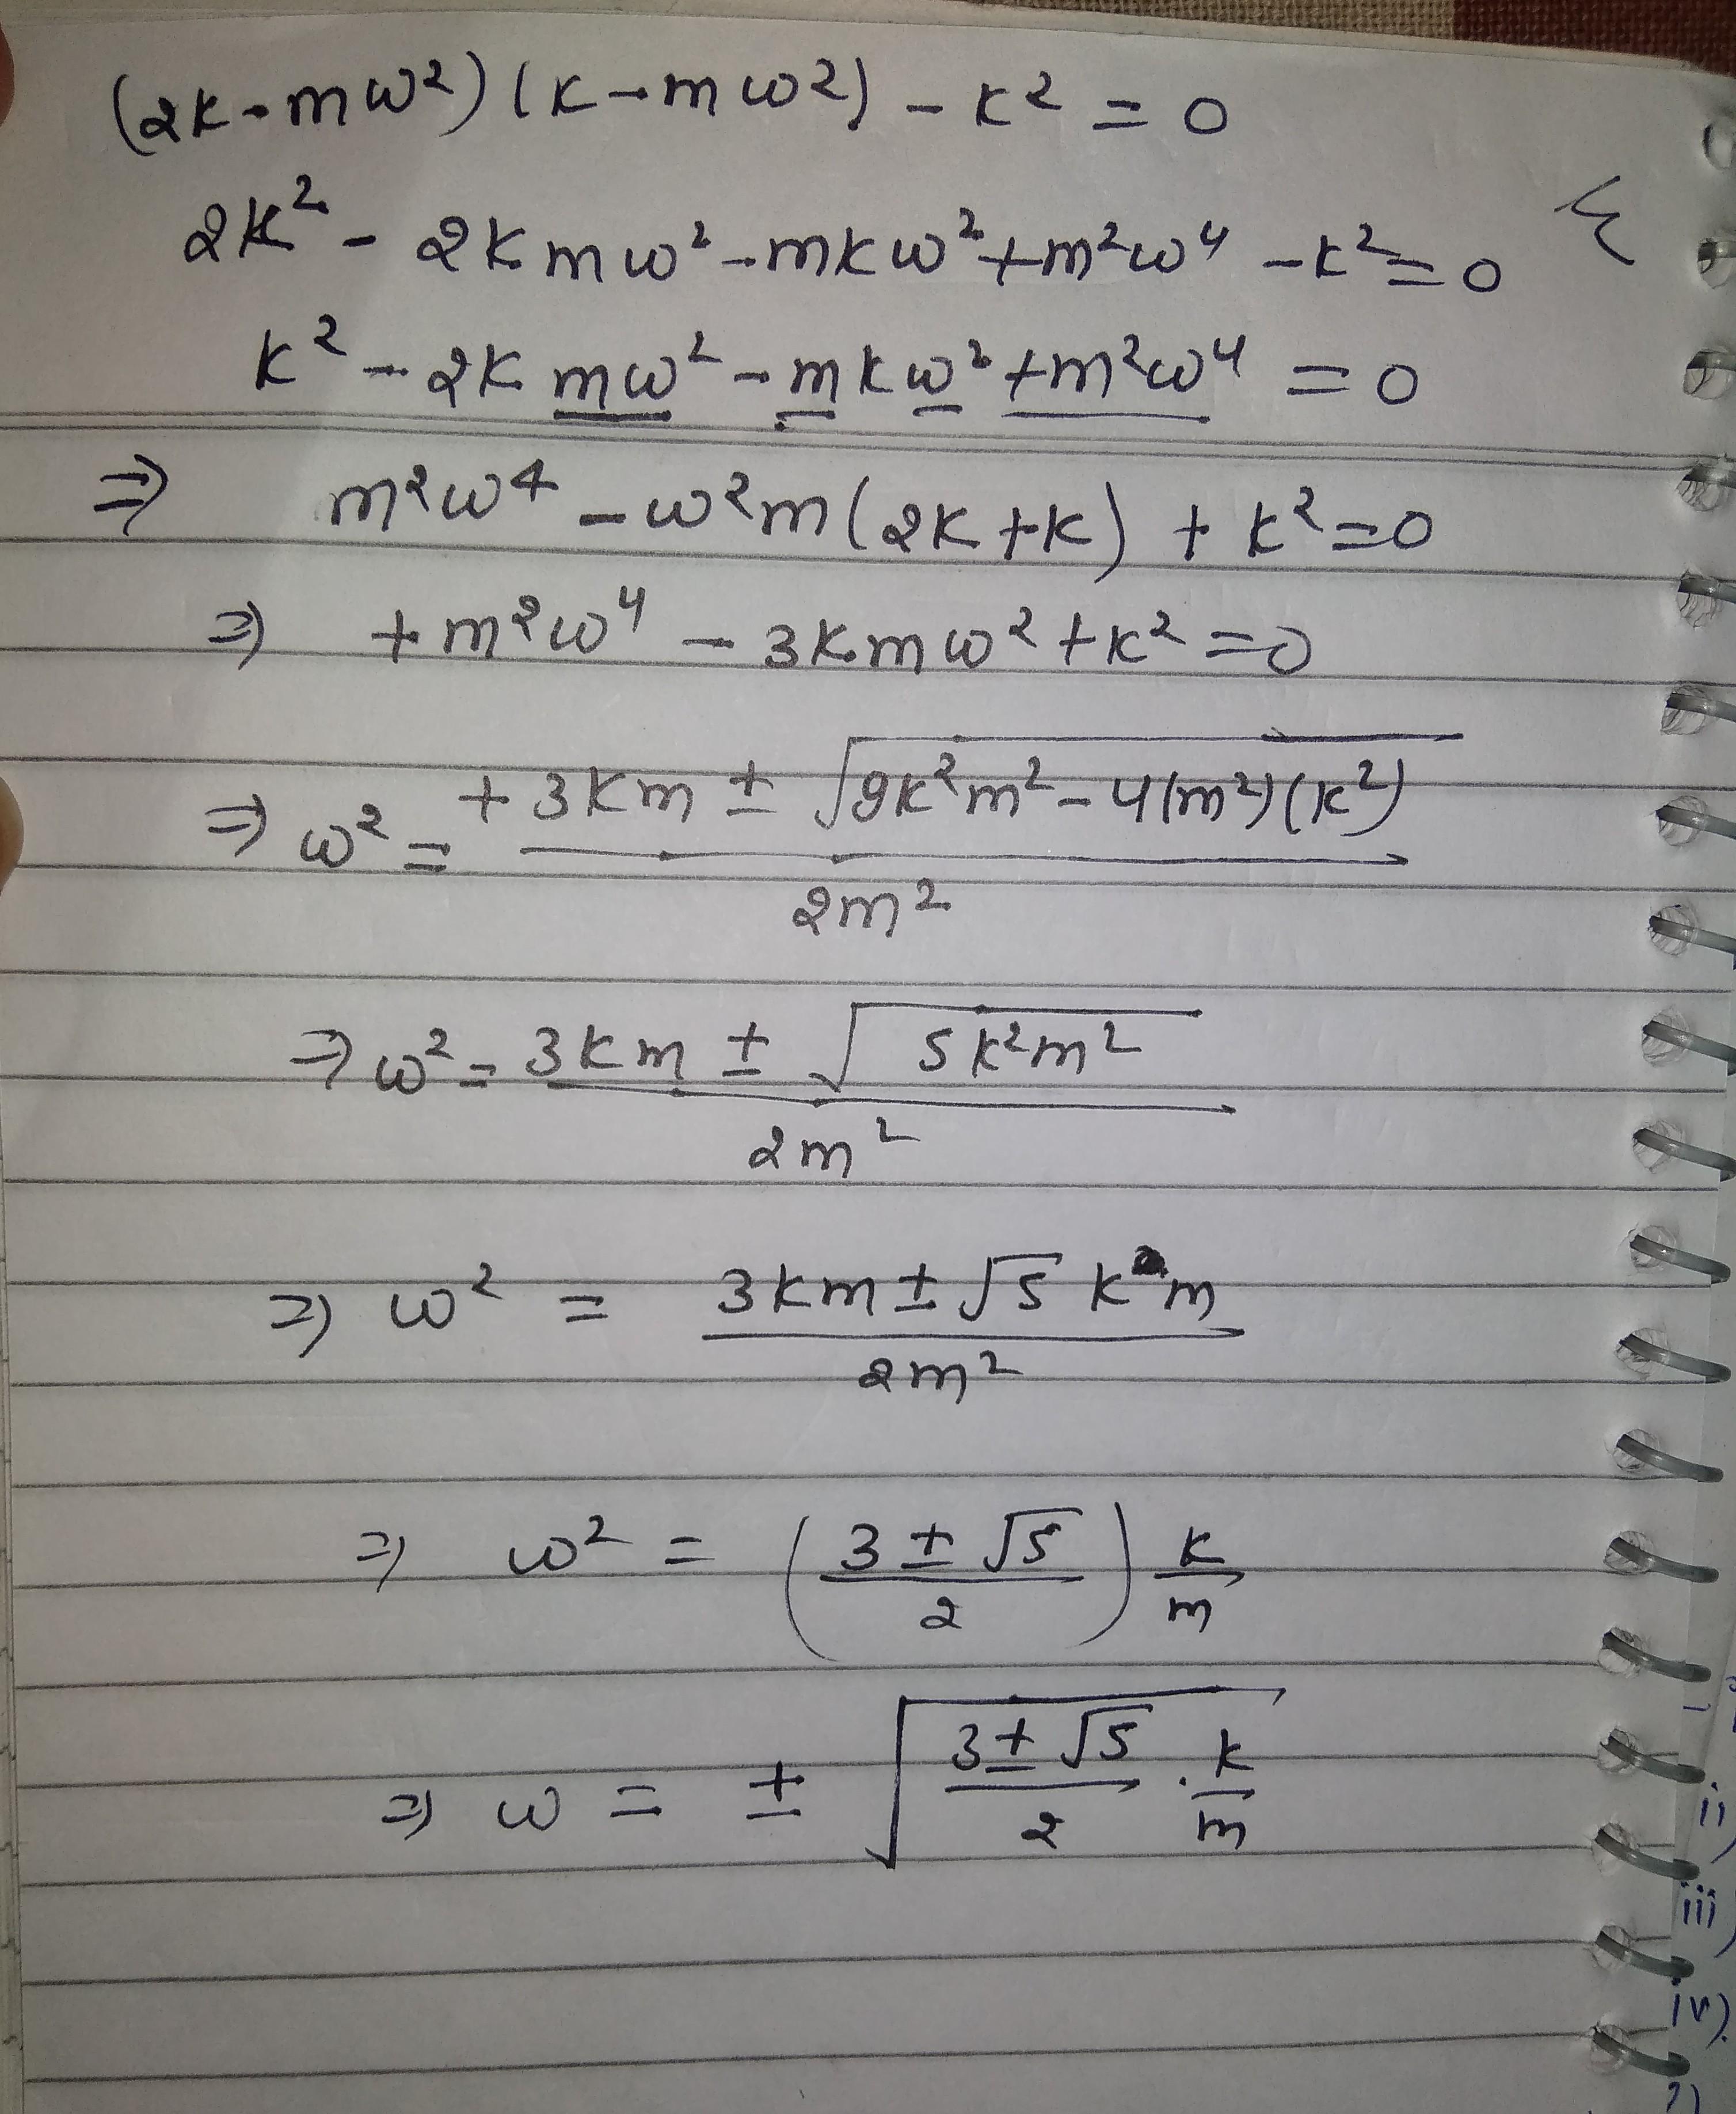 (2K - mω²) (K - mω²) - K² = 0
2K² - 2Kmω² - mKω² + m²ω⁴ - K² = 0
K² - 2Kmω² - mKω² + m²ω⁴ = 0
⇒ m²ω⁴ - ω²m(2K + K) + K² = 0
⇒ + m²ω⁴ - 3Kmω² + K² = 0
⇒ ω² = + 3Km ± √(9K²m² - 4(m²)(K²)) / 2m²
⇒ ω² = 3Km ± √(5K²m²) / 2m²
⇒ ω² = 3Km ± √5 Km / 2m²
⇒ ω² = (3 ± √5 / 2) K/m
⇒ ω = ± √(3 ± √5 / 2 · K/m)
ii)
iii)
iv).